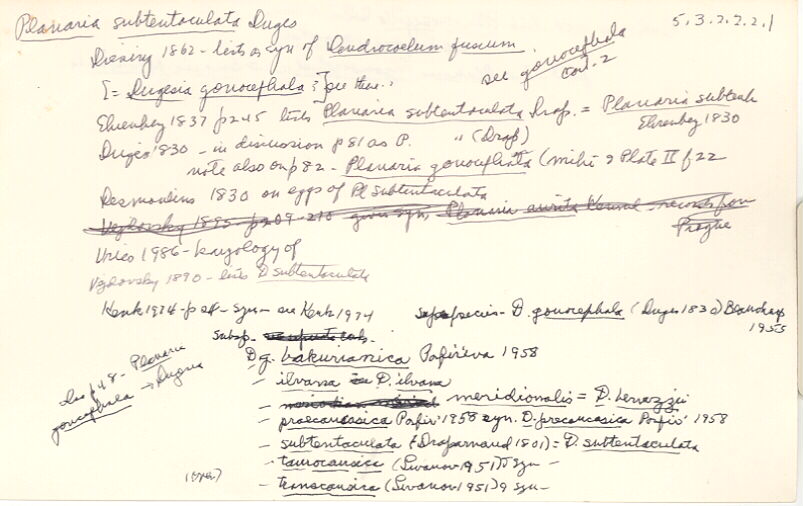 Planaria subtentaculata Duges 5.3.2.2.2.1
Diesing 1862 - lists as syn of Dendrocoelum fuscum.
see gonocephala
card. 2
[= Dugesia gonocephala ?] see there.
Ehrenberg 1837 p245 lists Planaria subtentaculata Drap. = Planaria subtent
Ehrenberg 1830
Dugès 1830 - in discussion p81 as P. " (Drap)
note also on p82 - Planaria gonocephala (mihi) Plate II f22
Desmoulins 1830 on eggs of Pl subtentaculata
Vejdovsky 1895 - p209-210 gives syn. Planaria aurita Kennel - records from
Prague
Vries 1986 - karyology of
Vejdovsky 1890 - lists D subtentaculata
Kenk 1974 - p - syn - see Kenk 1974 superspecies - D. gonocephala (Duges 1830) Beauchamp
1955
subsp.
D g. bakurianica Porfirʹeva 1958
- ilvana = D. ilvana
- meridionalis = D. benazzii
- praecaucasica Porfirʹ 1958 syn. D. precaucasica Porfirʹ 1958
- subtentaculata (Draparnaud 1801) = D. subtentaculata
- taurocaucasica (Livanov 1951) syn -
- transcaucasica (Livanov 1951) syn -
See p48 - Planaria
gonocephala → Dugesia
(over)